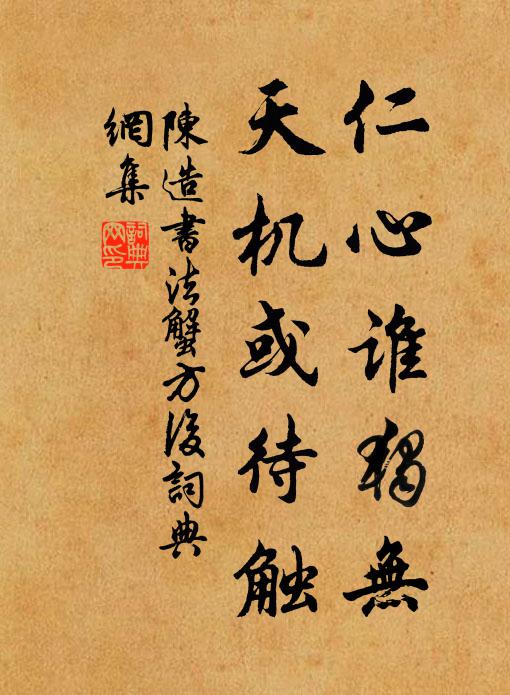 仁心谁獨無
天机或待触
陳造書法蟹方後詞典
網集
詞典网印